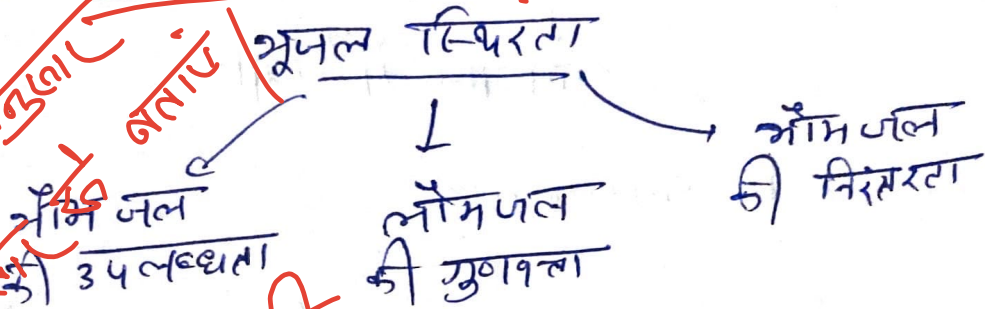 भूजल स्थिरता
भौम जल
की उपलब्धता
लौमजल
की गुणवत्ता
भौम जल
की निरन्तरता
बताएं